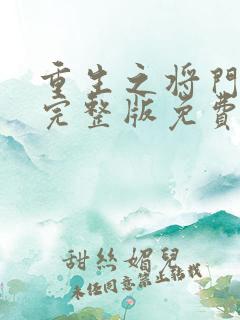 重生之将門
完整版免費
甜絲媚兒
未任同意禁止轉載